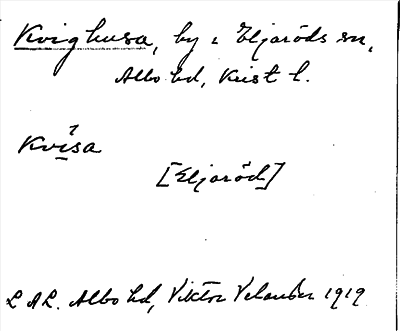 Kvighusa, by i Eljaröds sn,
Albo hd, Krist l.
Kvísa
[Eljaröd]
L.A.L. Albo hd, Viktor Velander 1919